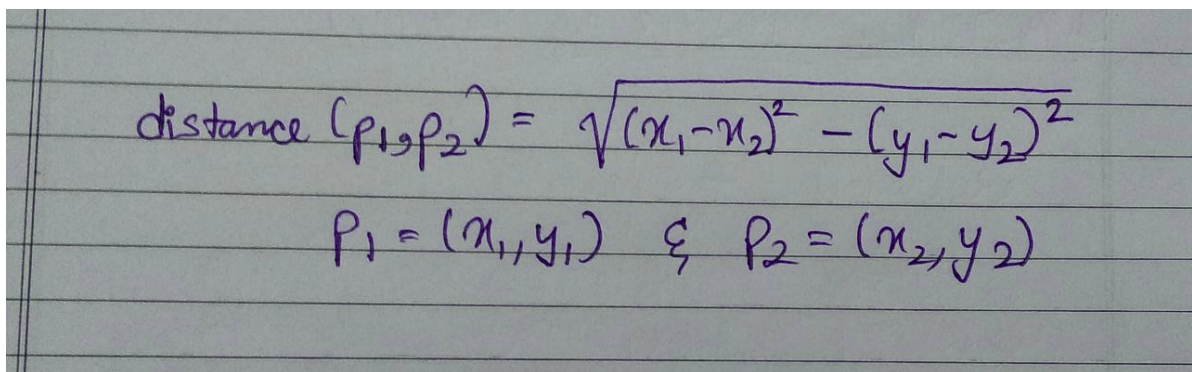 distance (p₁,p₂) = √((x₁-x₂)² - (y₁-y₂)²)
p₁ = (x₁, y₁) & p₂ = (x₂, y₂)